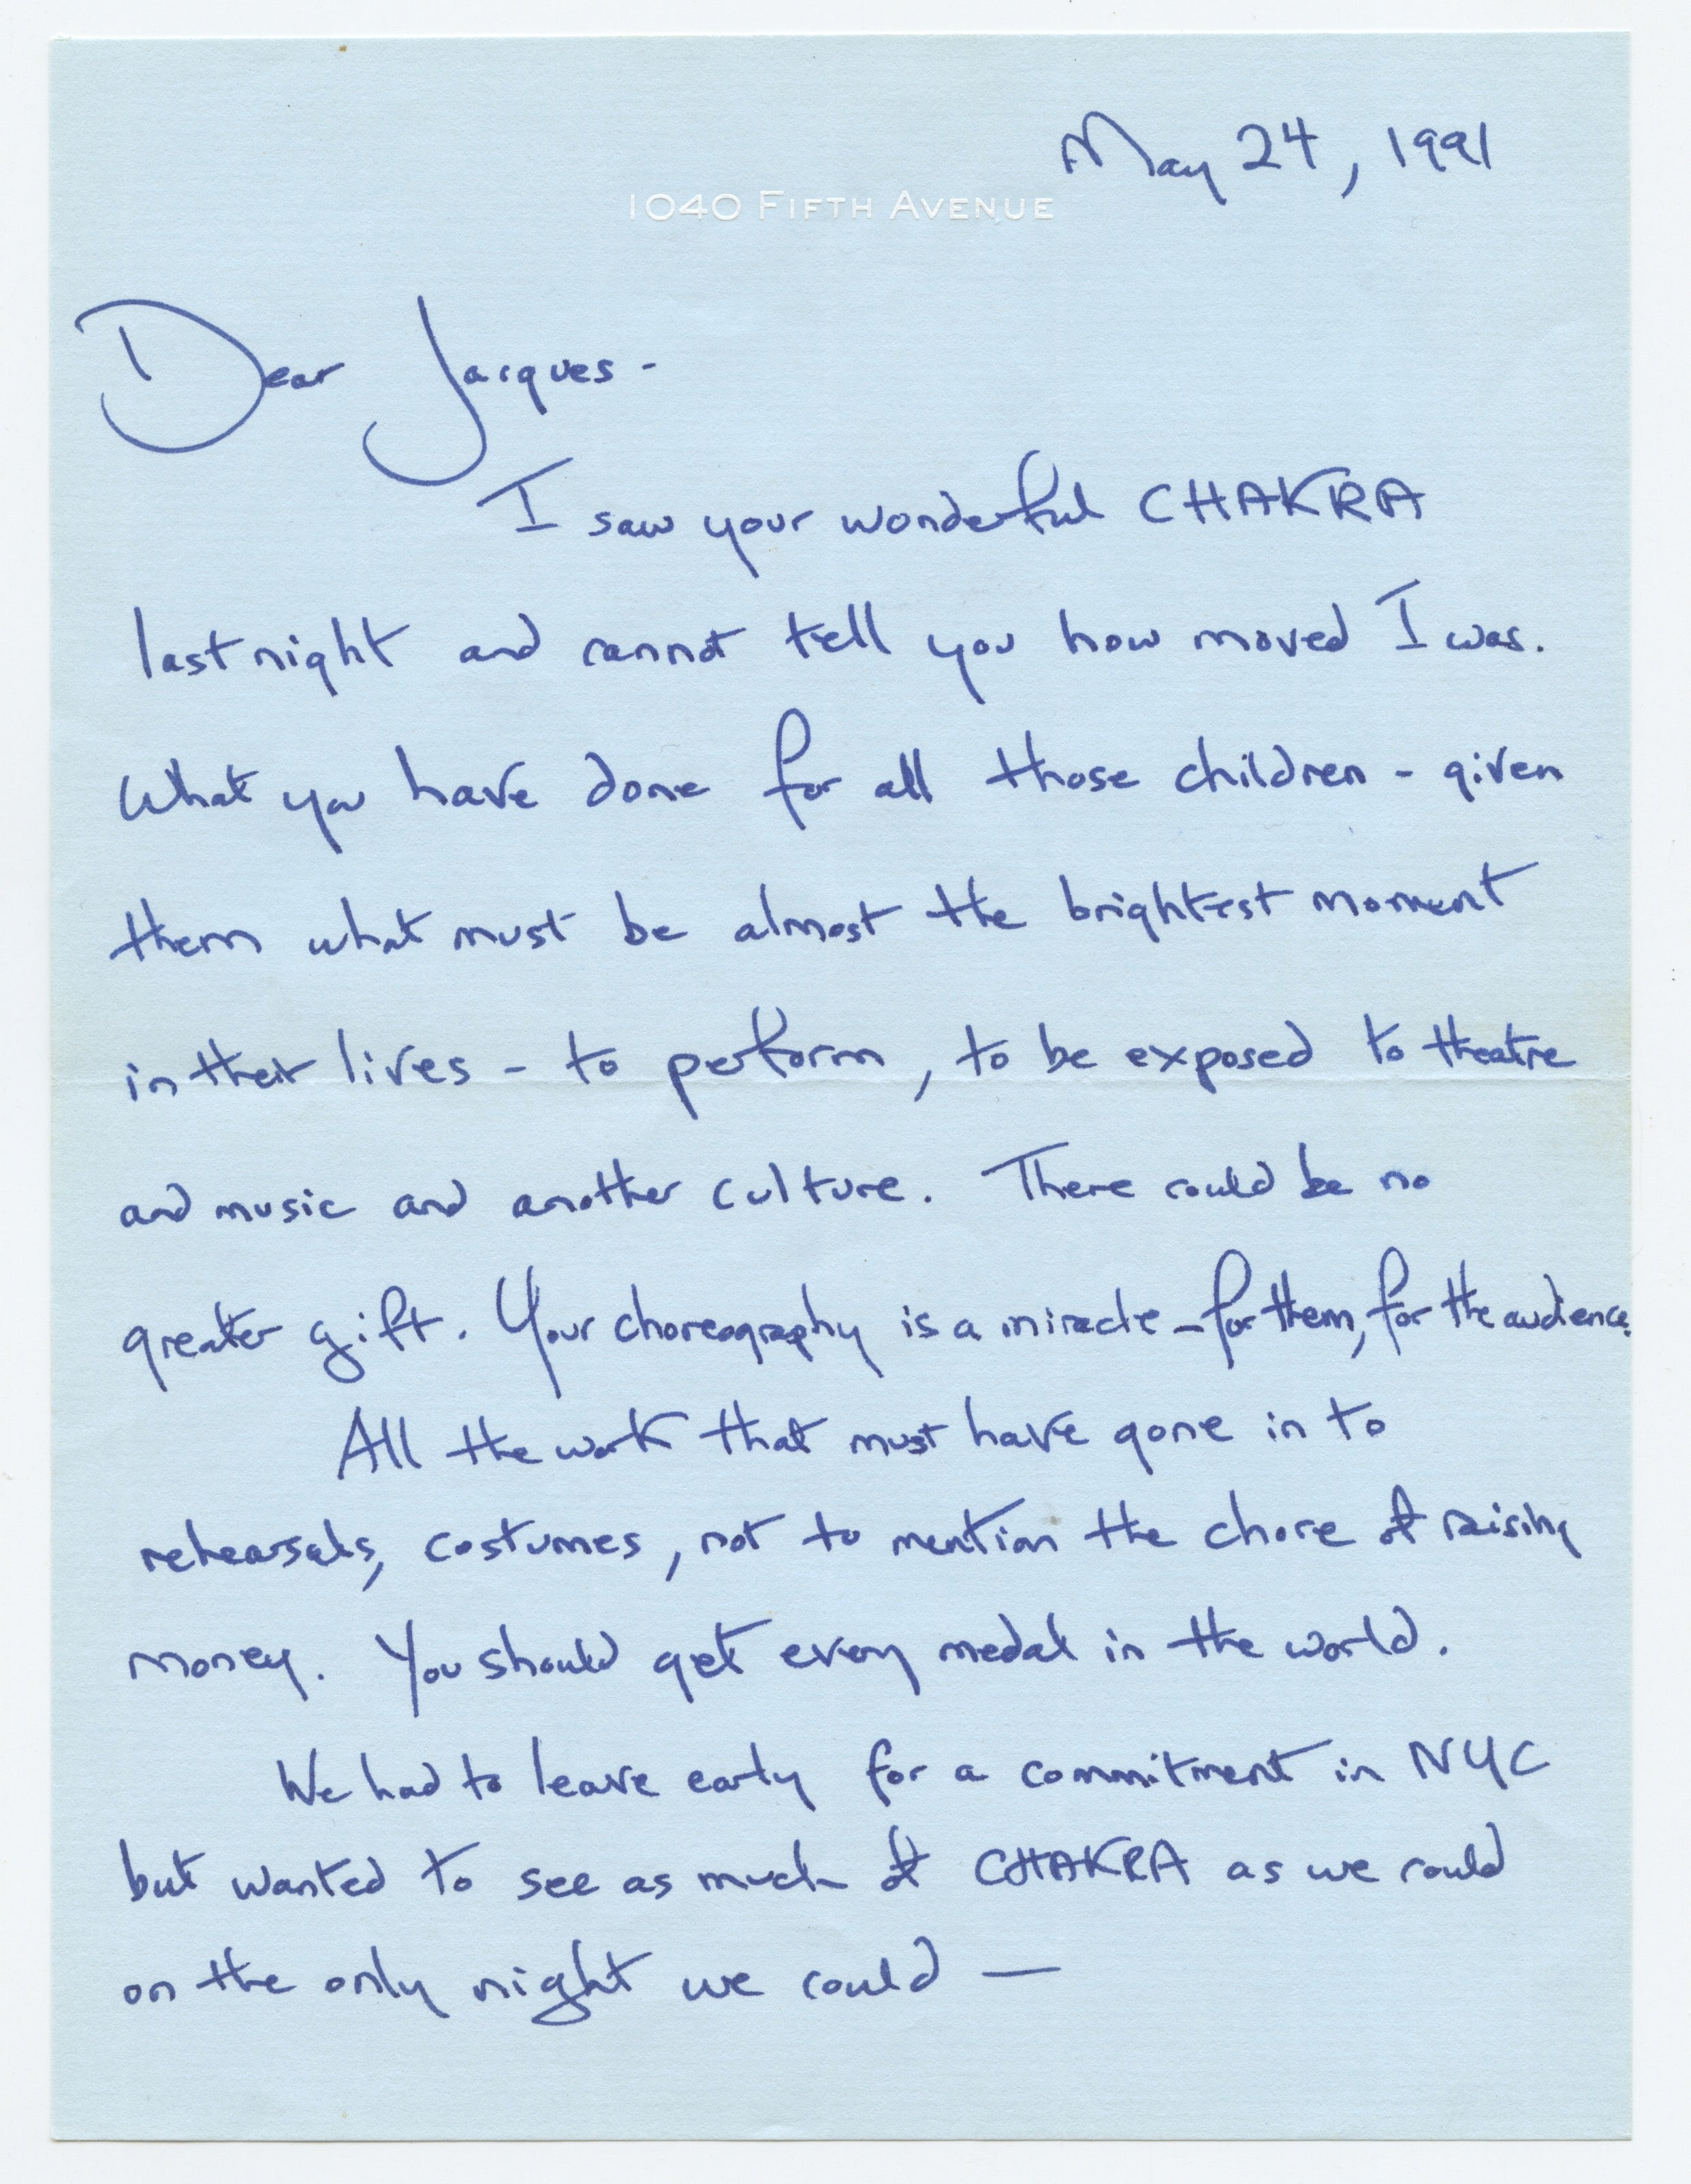 May 24, 1991
1040 FIFTH AVENUE
Dear Jacques -
I saw your wonderful CHAKRA
last night and cannot tell you how moved I was.
What you have done for all those children - given
them what must be almost the brightest moment
in their lives - to perform, to be exposed to theatre
and music and another culture. There could be no
greater gift. Your choreography is a miracle - for them, for the audience.
All the work that must have gone in to
rehearsals, costumes, not to mention the chore of raising
money. You should get every medal in the world.
We had to leave early for a commitment in NYC
but wanted to see as much of CHAKRA as we could
on the only night we could —